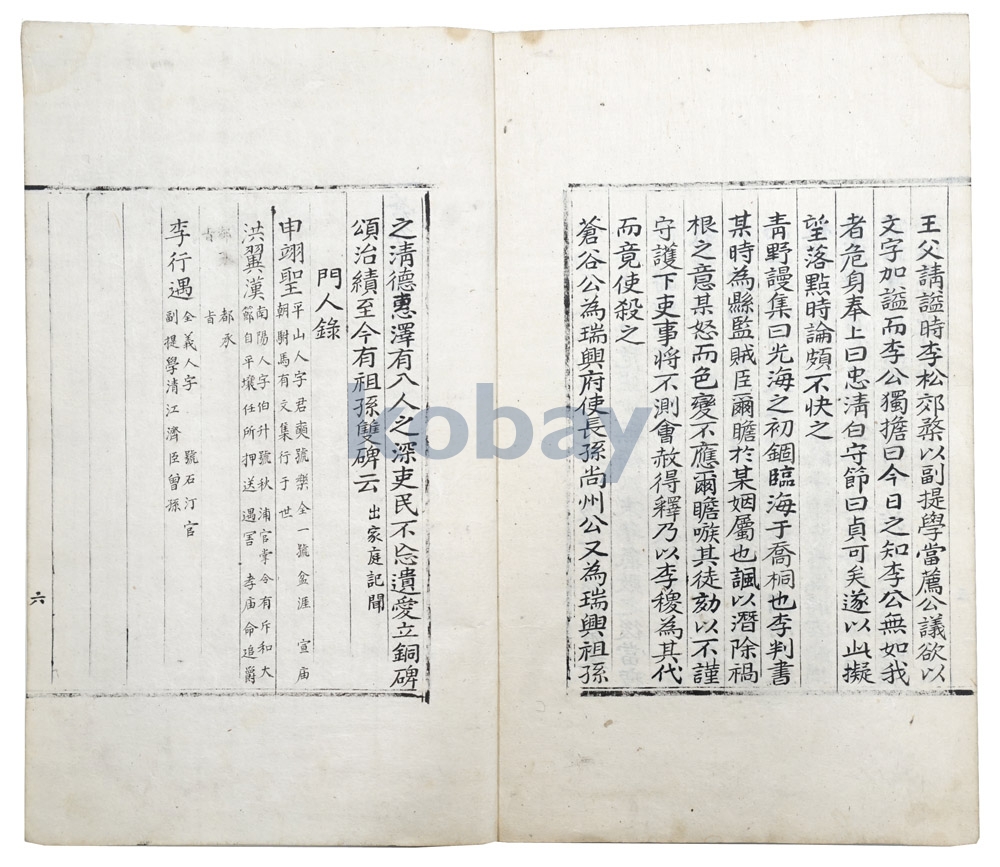 王父請諡時李松郊棨以副提學當薦公議欲以
文字加諡而李公獨擔曰今日之知李公無如我
者危身奉上曰忠淸白守節曰貞可矣遂以此擬
望落點時論頗不快之
靑野謾集曰光海之初錮臨海于喬桐也李判書
某時爲縣監賊臣爾瞻於某姻屬也諷以潛除禍
根之意某怒而色變不應爾瞻嗾其徒劾以不謹
守護下吏事將不測會赦得釋乃以李稷爲其代
而竟使殺之
蒼谷公爲瑞興府使長孫尙州公又爲瑞興祖孫
之淸德惠澤有入人之深吏民不忘遺愛立銅碑
頌治績至今有祖孫雙碑云 出家庭記聞
門人錄
申翊聖 平山人字君奭號樂全一號盆涯 宣庙
朝駙馬有文集行于世
洪翼漢 南陽人字伯升號秋浦官掌令有斥和大
節自平壤任所押送遇害 孝庙命追爵
都承
旨
李行遇 全義人字 號石汀官
副提學淸江濟臣曾孫
六
kobay